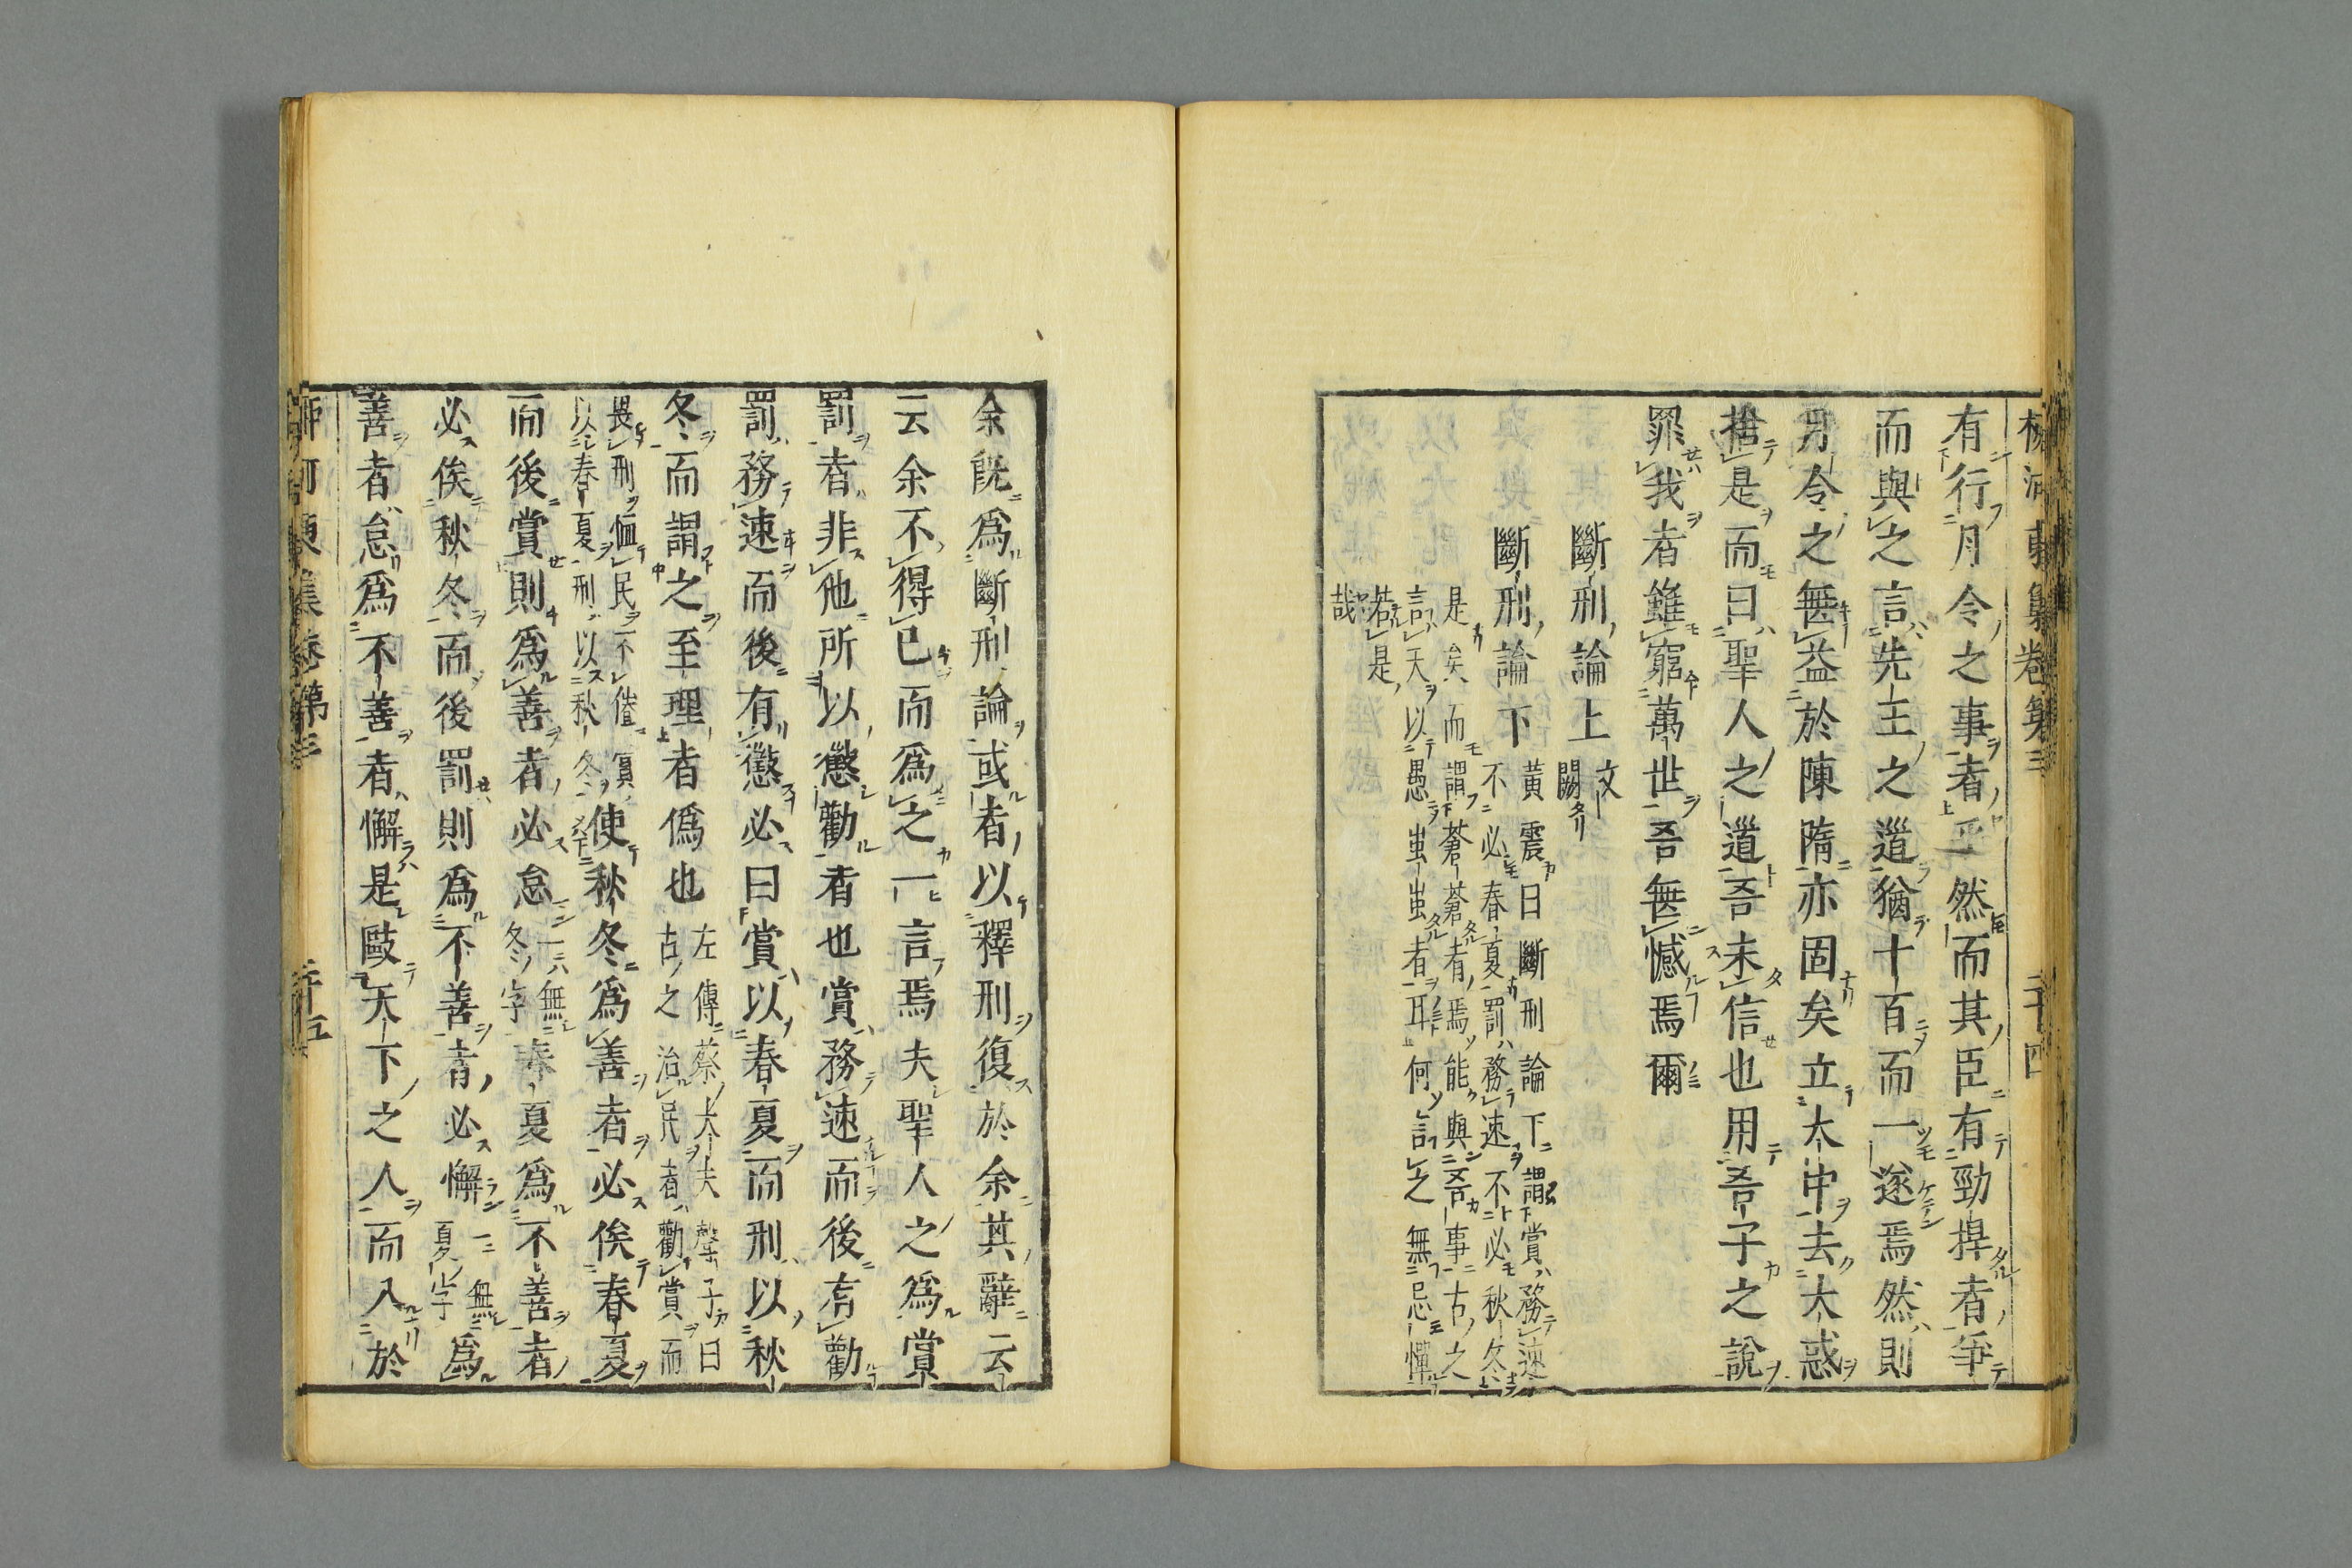 柳河東集卷第三　二十四
有行月令之事者乎然而其臣有勁捍者爭
而與之言先王之道猶十百而一遂焉然則
月令之無益於陳隋亦固矣立大中去大惑
捨是而曰聖人之道吾未信也用吾子之說
罪我者雖窮萬世吾無憾焉爾
斷刑論上
文
闕
斷刑論下
黃震曰斷刑論下謂賞務速
不必春夏罰務速不必秋冬
是矣而謂蒼蒼者焉能與吾事古之
言天以愚蚩蚩者耳何言之無忌憚
若是
哉
余旣爲斷刑論或者以釋刑復於余其辭云
云余不得已而爲之一言焉夫聖人之爲賞
罰者非他所以懲勸者也賞務速而後有勸
罰務速而後有懲必曰賞以春夏而刑以秋
冬而謂之至理者僞也
左傳蔡大夫聲子曰
古之治民者勸賞而
畏刑恤民不倦賞
以春夏刑以秋冬
使秋冬爲善者必俟春夏
而後賞則爲善者必怠
一无無
冬字
春夏爲不善者
必俟秋冬而後罰則爲不善者必懈
一無
夏字
爲
善者怠爲不善者懈是毆天下之人而入於
柳河東集卷第三　二十五